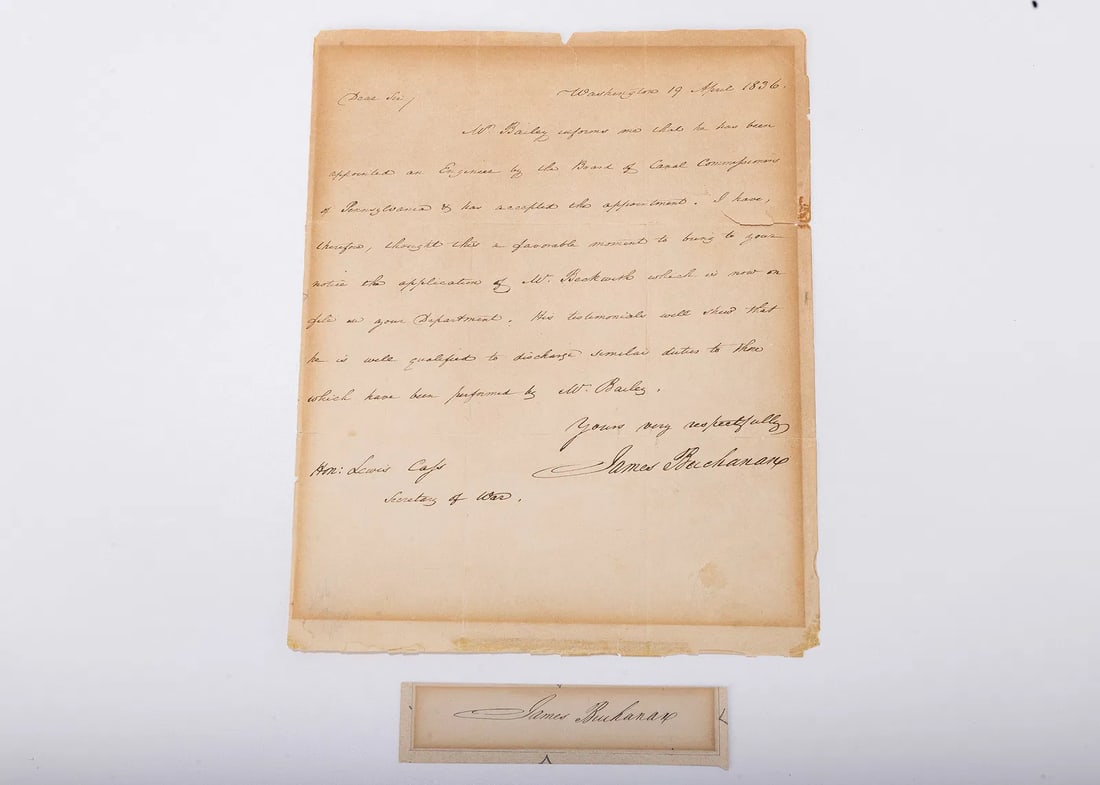 Washington 19 April 1836.
Dear Sir,
Mr. Bailey informs me that he has been
appointed an Engineer by the Board of Canal Commissioners
of Pennsylvania & has accepted the appointment. I have,
therefore, thought this a favorable moment to bring to your
notice the application of Mr. Beckwith which is now on
file in your Department. His testimonials will shew that
he is well qualified to discharge similar duties to those
which have been performed by Mr. Bailey.
Yours very respectfully
James Buchanan
Hon: Lewis Cass
Secretary of War.
James Buchanan